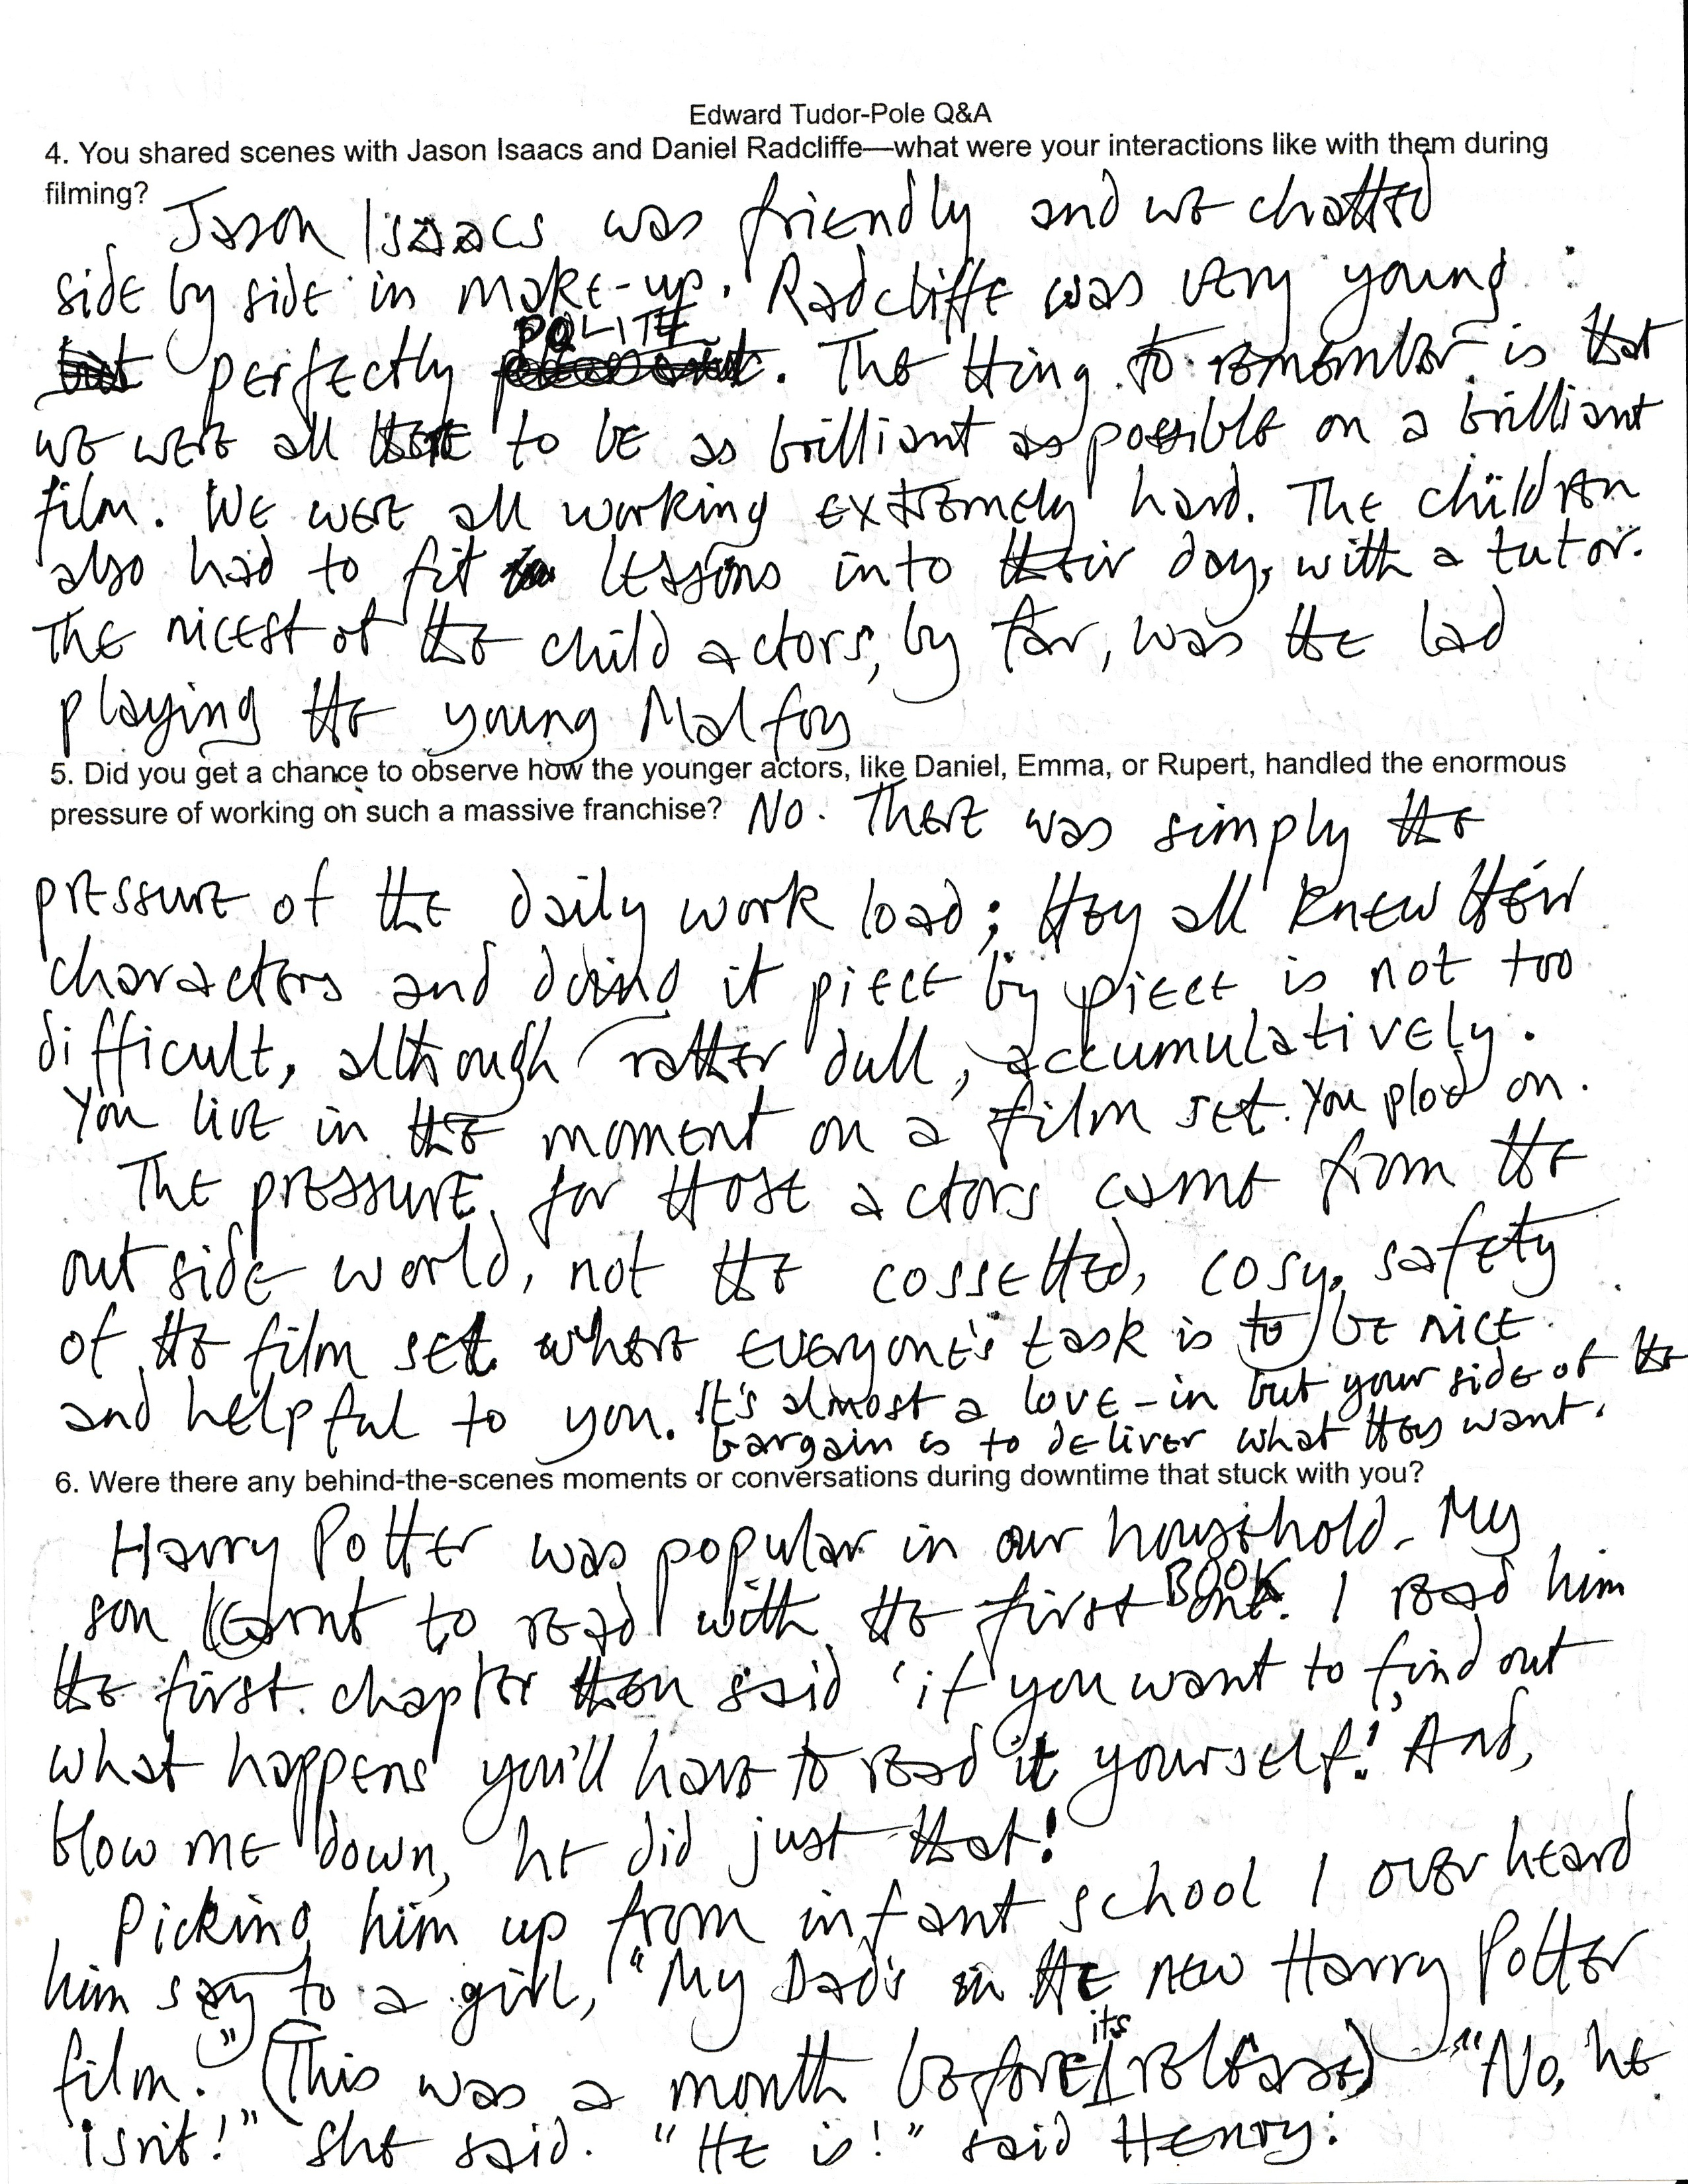 Edward Tudor-Pole Q&A
4. You shared scenes with Jason Isaacs and Daniel Radcliffe—what were your interactions like with them during
filming?
Jason Isaacs was friendly and we chatted
side by side in make-up. Radcliffe was very young
but perfectly POLITE. The thing to remember is that
we were all there to be as brilliant as possible on a brilliant
film. We were all working extremely hard. The children
also had to fit lessons into their day, with a tutor.
The nicest of the child actors, by far, was the lad
playing the young Malfoy
5. Did you get a chance to observe how the younger actors, like Daniel, Emma, or Rupert, handled the enormous
pressure of working on such a massive franchise?
No. There was simply the
pressure of the daily work load; they all knew their
characters and doing it piece by piece is not too
difficult, although rather dull, accumulatively.
You live in the moment on a film set. You plod on.
The pressure for those actors came from the
outside world, not the cossetted, cosy, safety
of the film set where everyone's task is to be nice
and helpful to you. It's almost a love-in but your side of the
bargain is to deliver what they want.
6. Were there any behind-the-scenes moments or conversations during downtime that stuck with you?
Harry Potter was popular in our household. My
son learnt to read with the first BOOK. I read him
the first chapter then said 'if you want to find out
what happens you'll have to read it yourself!' And,
blow me down, he did just that!
Picking him up from infant school I overheard
him say to a girl, "My Dad's in the new Harry Potter
film." (This was a month before its release) "No, he
isn't!" she said. "He is!" said Henry.